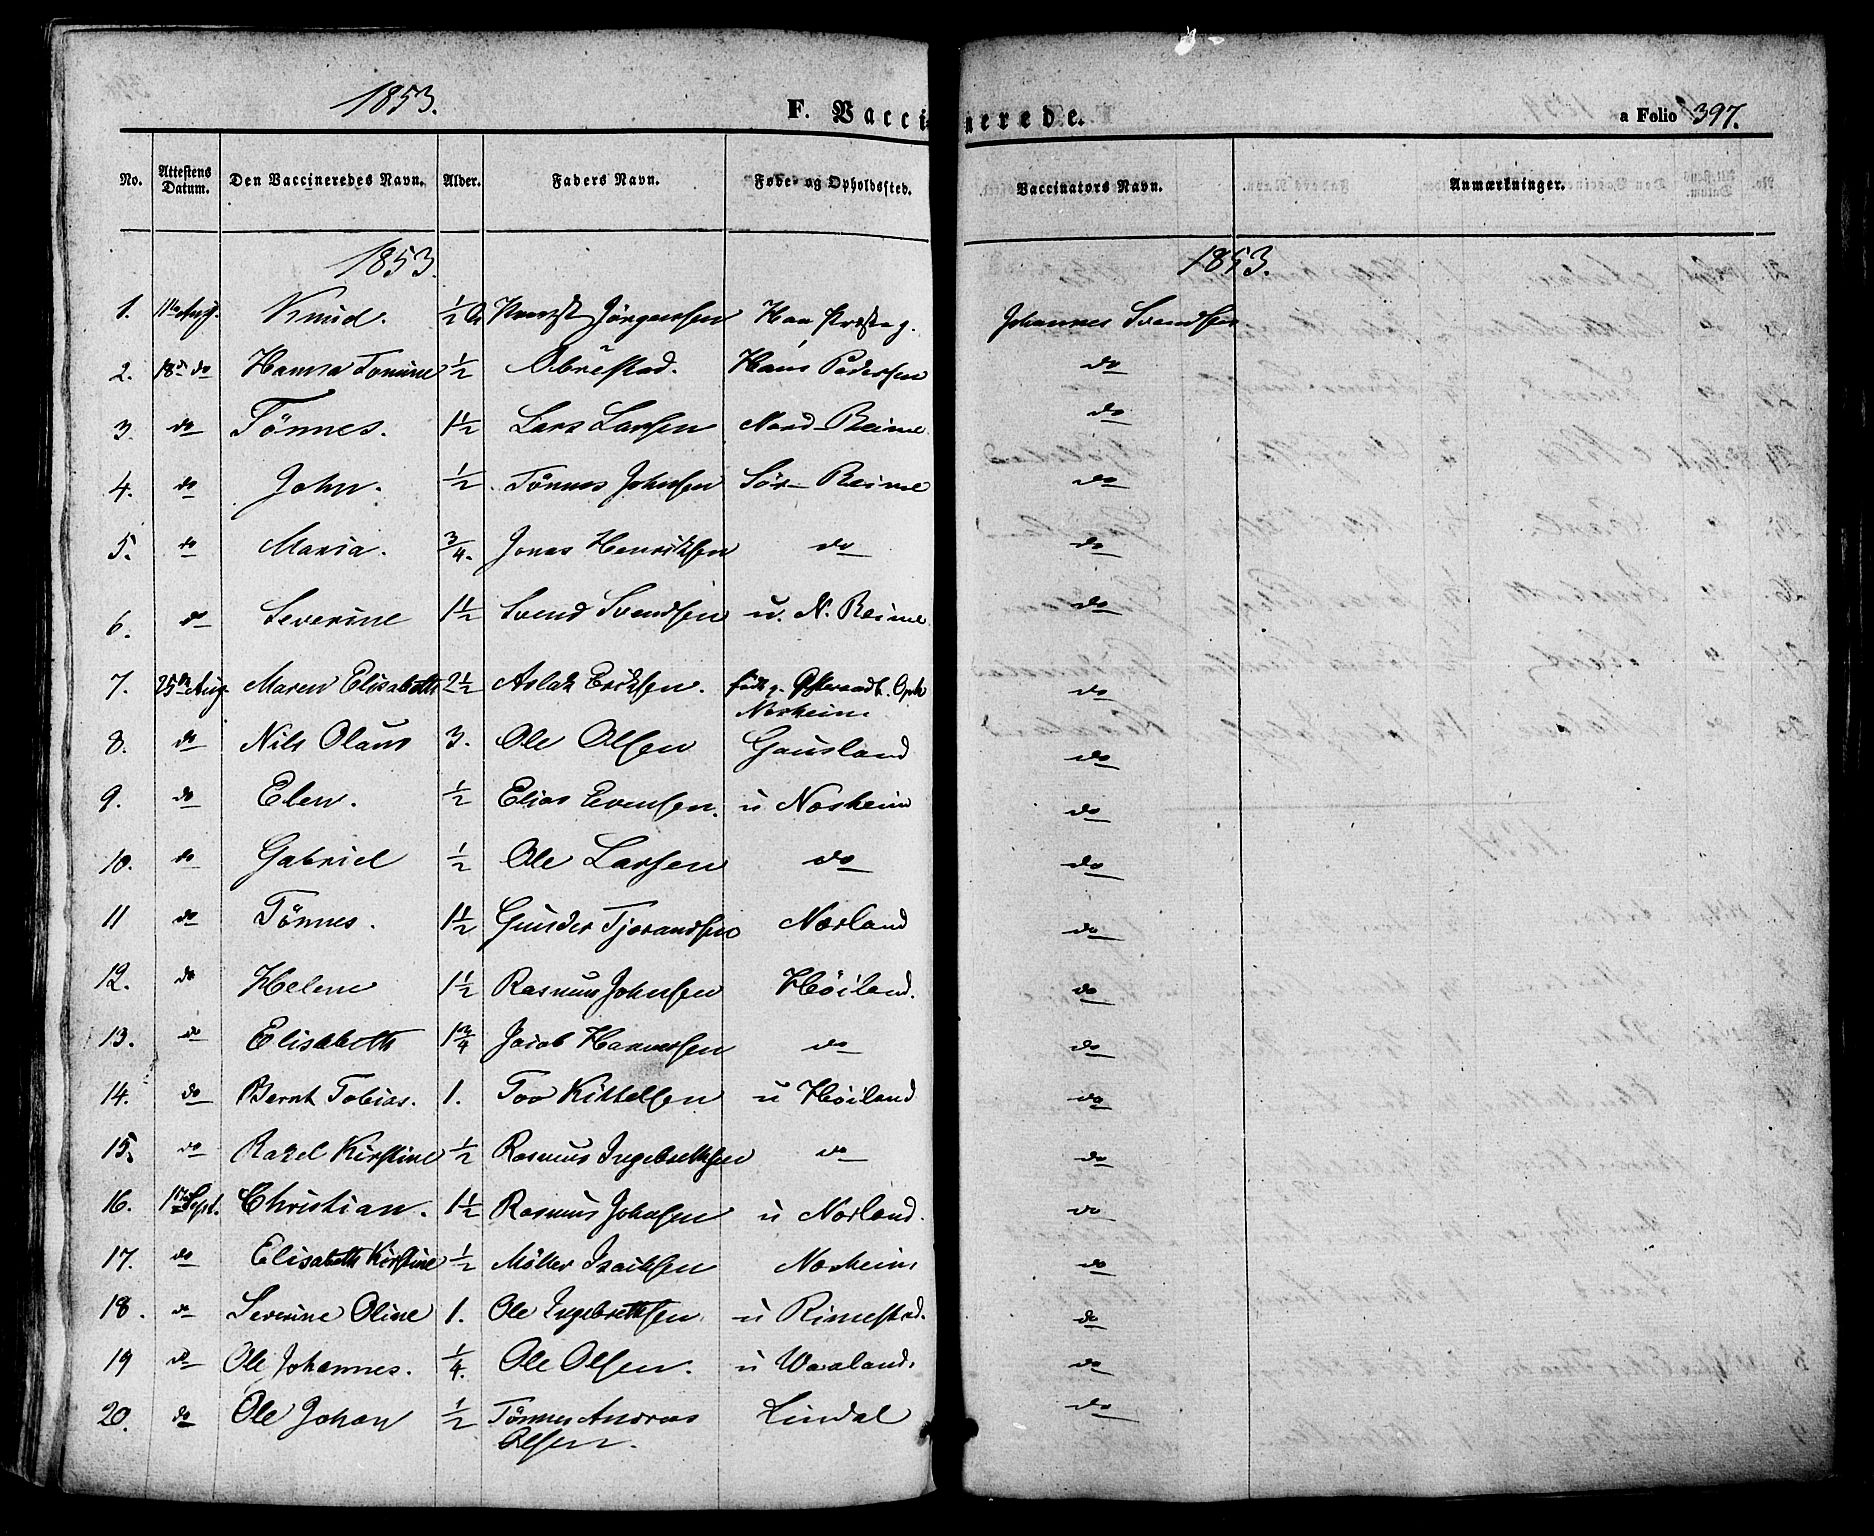 1853.
F. Vaccinerede.
a Folio 397.
No. Attestens Datum. Den Vaccineredes Navn. Alder. Faders Navn. Føde- og Opholdssted. Vaccinators Navn. Anmærkninger.
1853. 1853.
1. 11te Aug. Knud. 1/2 Jörgensen Haa Johannes Svendsen
2. 18de do Hanna Tomine 1/2 Obrestad. Hans Pedersen do
3. do Tönnes. 1 1/2 Lars Larsen Nord-Reime do
4. do John. 1/2 Tönnes Johnsen Sör-Reime do
5. do Maria. 3/4. Jonas Henriksen do do
6. do Severine 1 1/2 Svend Svendsen u. N. Reime do
7. 25de Aug. Maren Elisabeth 2 1/2 Aslak Eriksen. født p. do
Norheim
8. do Nils Olaus 3. Ole Olsen Gausland do
9. do Elen. 1/2 Elias Evensen. u Norheim do
10. do Gabriel 1/2 Ole Larsen do do
11 do Tönnes. 1 1/2 Gunder Tjorandsen Nærland do
12. do Helene 1 1/2 Rasmus Johnsen Höiland. do
13. do Elisabeth 1 3/4 Jacob Hansen do do
14. do Bernt Tobias. 1. Tov Kittelsen u Höiland do
15. do Rakel Kirstine 1/2 Rasmus Ingebrethsen do do
16. Sept. Christian. 1 1/2 Rasmus Johnsen u Norland. do
17. do Elisabeth Kirstine 1/2 Möller Isaiksen Norheim do
18. do Severine Oline 1. Ole Ingebrethsen u Rimestad. do
19 do Ole Johannes. 1/4. Ole Olsen. u do
20. do Ole Johan 1/2 Tönnes Andreas Lindal do
Olsen.